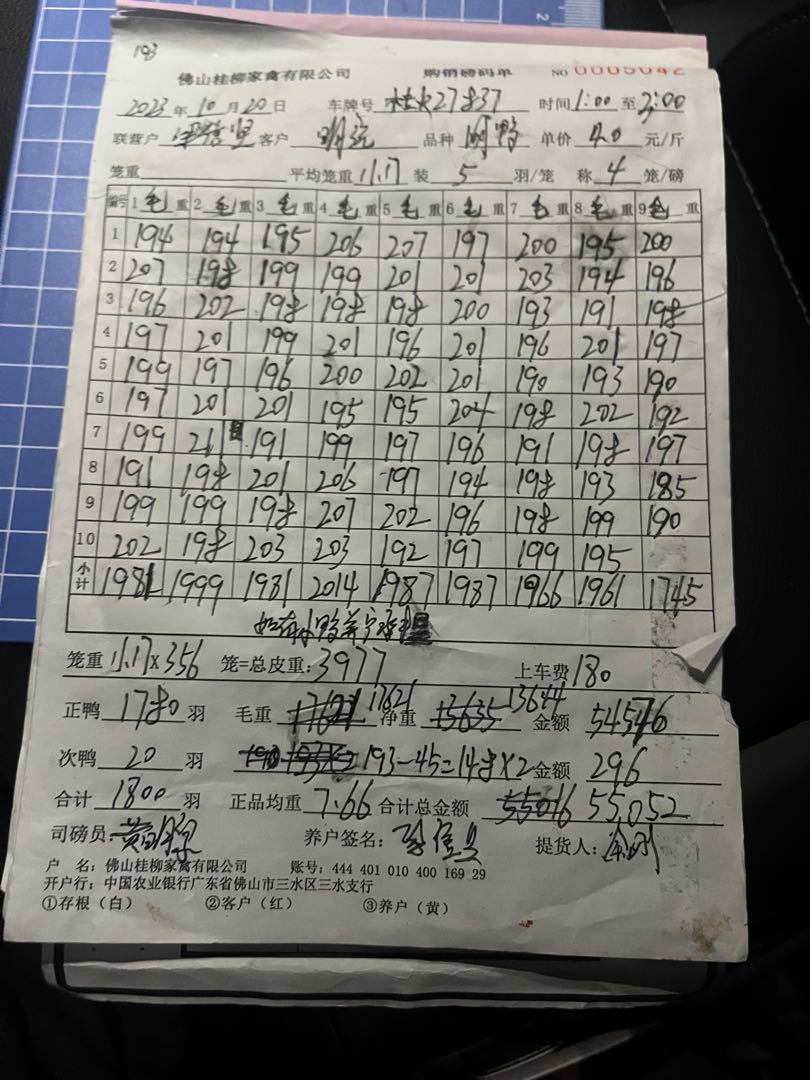 193
佛山桂柳家禽有限公司 购销磅码单 NO 0005042
2023年10月20日 车牌号 27837 时间1:00至3:00
联营户 客户 品种 单价 4.0 元/斤
笼重 平均笼重 11.17 装 5 羽/笼 称 4 笼/磅
编号 1毛重 2毛重 3毛重 4毛重 5毛重 6毛重 7毛重 8毛重 9毛重
1 194 194 195 206 207 197 200 195 200
2 207 198 199 199 201 201 203 194 196
3 196 202 198 198 198 200 193 191 198
4 197 201 199 201 196 201 196 201 197
5 199 197 196 200 202 201 190 193 190
6 197 201 201 195 195 204 198 202 192
7 199 211 191 199 197 196 191 198 197
8 191 198 201 206 197 194 198 193 185
9 199 199 198 207 202 196 198 199 190
10 202 198 203 203 192 197 199 195
小计 1981 1999 1981 2014 1987 1987 1966 1961 1745
笼重 11.17×356 笼=总皮重:3977 上车费180
正鸭 1780 羽 毛重 17621 净重 13635 13644 金额 54576
次鸭 20 羽 193-45=148×2 金额 296
合计 1800 羽 正品均重 7.66 合计总金额 55016 55,052
司磅员: 养户签名: 提货人:
户 名:佛山桂柳家禽有限公司 账号:444 401 010 400 169 29
开户行:中国农业银行广东省佛山市三水区三水支行
①存根(白) ②客户(红) ③养户(黄)